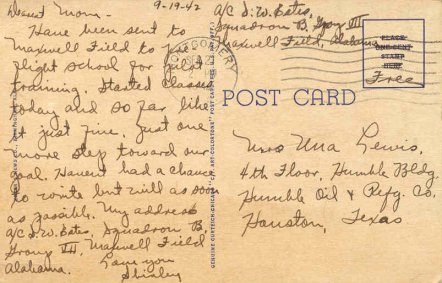 9-19-42
Dearest Mom -
Have been sent to
Maxwell Field to pre-
flight school for pilot
training. Started classes
today and so far like
it just fine. Just one
more step toward our
goal. Havent had a chance
to write but will as soon
as possible. My address
A/C S.W. Estes, Squadron B,
Group III, Maxwell Field
Alabama.
Love you
Shirley
A/C S.W. Estes
Squadron B, Group III
Maxwell Field, Alabama
MONTGOMERY
PLACE
ONE CENT
STAMP
HERE
Free
POST CARD
Mrs Una Lewis.
4th Floor, Humble Bldg.
Humble Oil & Refg. Co.
Houston, Texas